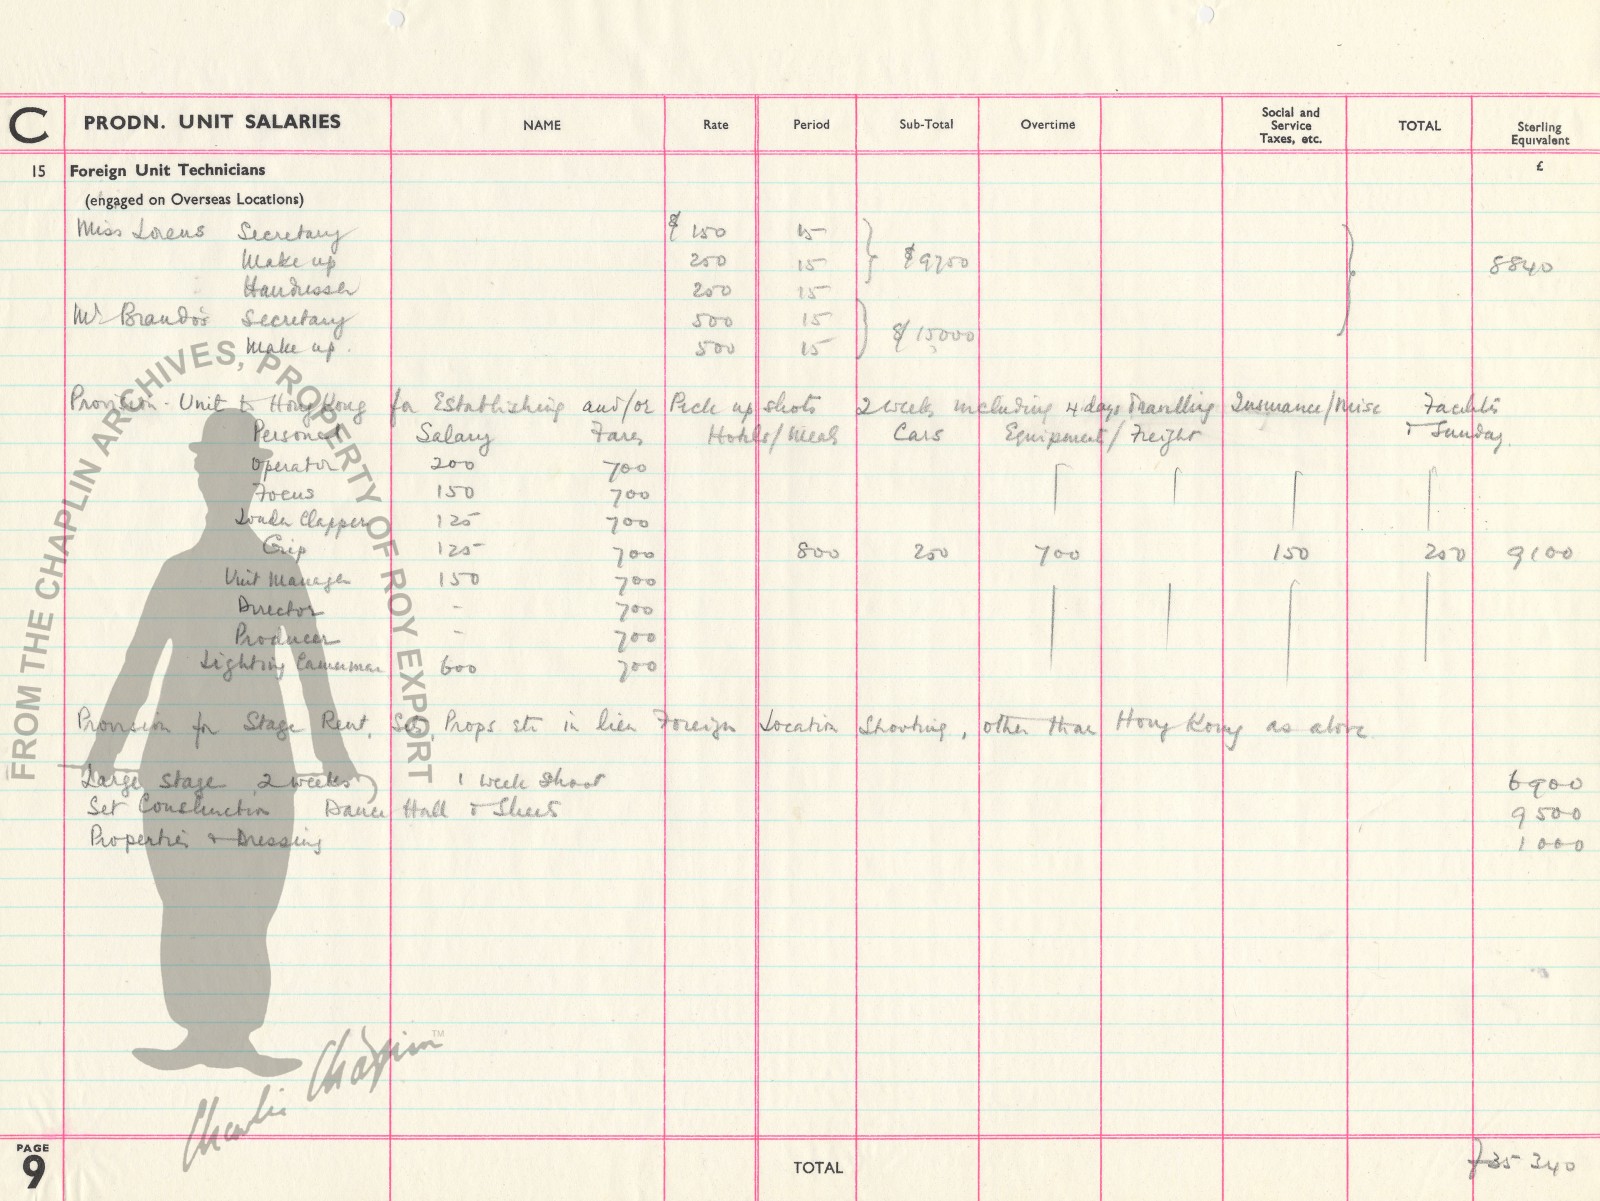 C PRODN. UNIT SALARIES NAME Rate Period Sub-Total Overtime Social and Service Taxes, etc. TOTAL Sterling Equivalent
15 Foreign Unit Technicians £
(engaged on Overseas Locations)
Miss Lorens Secretary $ 150 15
Make up 250 15 $9750 8840
Hairdresser 250 15
Mr Brando's Secretary 500 15
Make up. 500 15 $15000
Provision - Unit to Hong Kong for Establishing and/or Pick up shots 2 weeks including 4 days Travelling Insurance/Misc Facilits
Personel Salary Fares Hotels/Meals Cars Equipment/Freight & Sunday
Operator 200 700
Focus 150 700
Loader Clapper 125 700
Grip 125 700 800 250 700 150 250 9100
Unit Manager 150 700
Director - 700
Producer - 700
Lighting Cameraman 600 700
Provision for Stage Rent, Sets, Props etc in lieu Foreign Location Shooting, other than Hong Kong as above
Large Stage 2 weeks) 1 week shoot 6900
Set Construction Dance Hall & Sheets 9500
Properties & Dressing 1000
PAGE 9 TOTAL £35 340
FROM THE CHAPLIN ARCHIVES, PROPERTY OF ROY EXPORT
Charlie Chaplin™